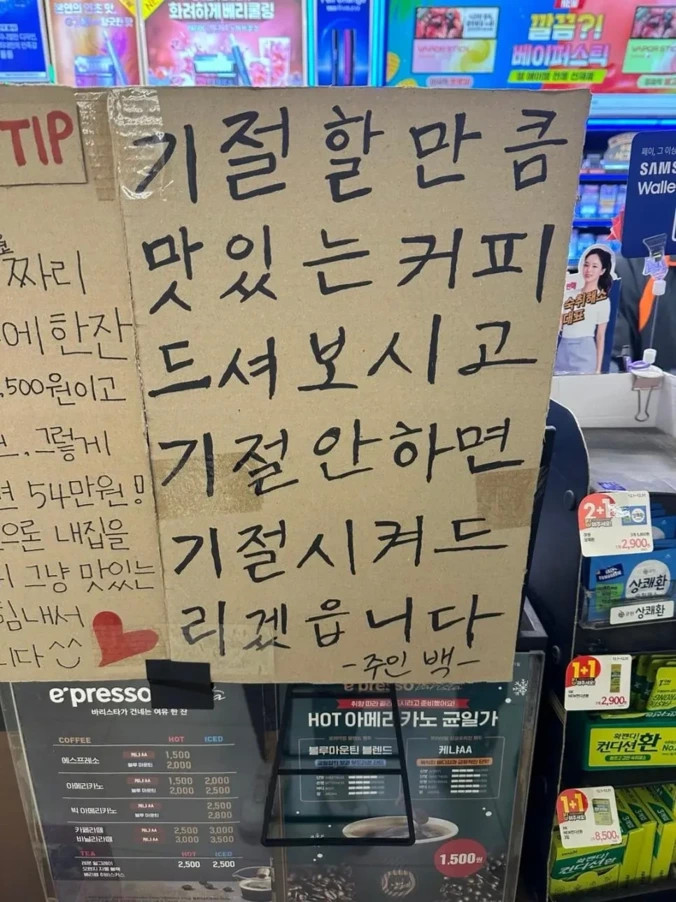 화려하게 베리쿨링
깔끔?!
베이퍼스틱
TIP
짜리
에 한잔
,500원이고
그렇게
면 54만원!
으론 내집을
그냥 맛있는
힘내서
니다
기절할만큼
맛있는커피
드셔보시고
기절안하면
기절시켜드
리겠읍니다
-주인 백-
SAMS
Walle
숙취해소
대표
e'presso
바리스타가 건네는 여유 한 잔
COFFEE HOT ICED
에스프레소 케냐AA 1,500
블루 마운틴 2,000
아메리카노 케냐AA 1,500 2,000
블루 마운틴 2,000 2,500
빅 아메리카노 케냐AA 2,500
2,800
카페라떼 케냐AA 2,500 3,000
바닐라라떼 3,000 3,500
TEA HOT ICED
2,500 2,500
HOT 아메리카노 균일가
블루마운틴 블렌드 케냐AA
1,500원
2+1
2,900
상쾌환
상쾌환
1+1
2,900
컨디션환
1+1
8,500